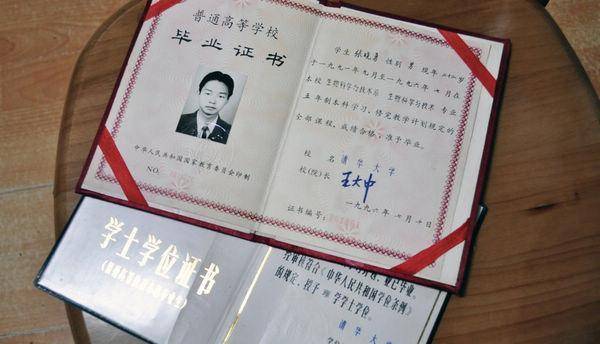 普通高等学校
毕业证书
中华人民共和国国家教育委员会印制
NO.
学生 张晓勇 性别 男 现年 岁
于一九九一年九月至一九九六年七月在
本校 生物科学与技术系 生物科学与技术 专业
五年制本科学习，修完教学计划规定的
全部课程，成绩合格，准予毕业。
校名 清华大学
校(院)长 王大中
一九九六年七月十日
证书编号：
学士学位证书
业已毕业。
经审核符合《中华人民共和国学位条例》
的规定，授予 理 学学士学位。
清华大学